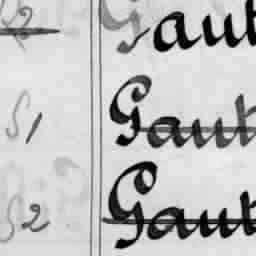 52 Gaut
51 Gaut
52 Gaut